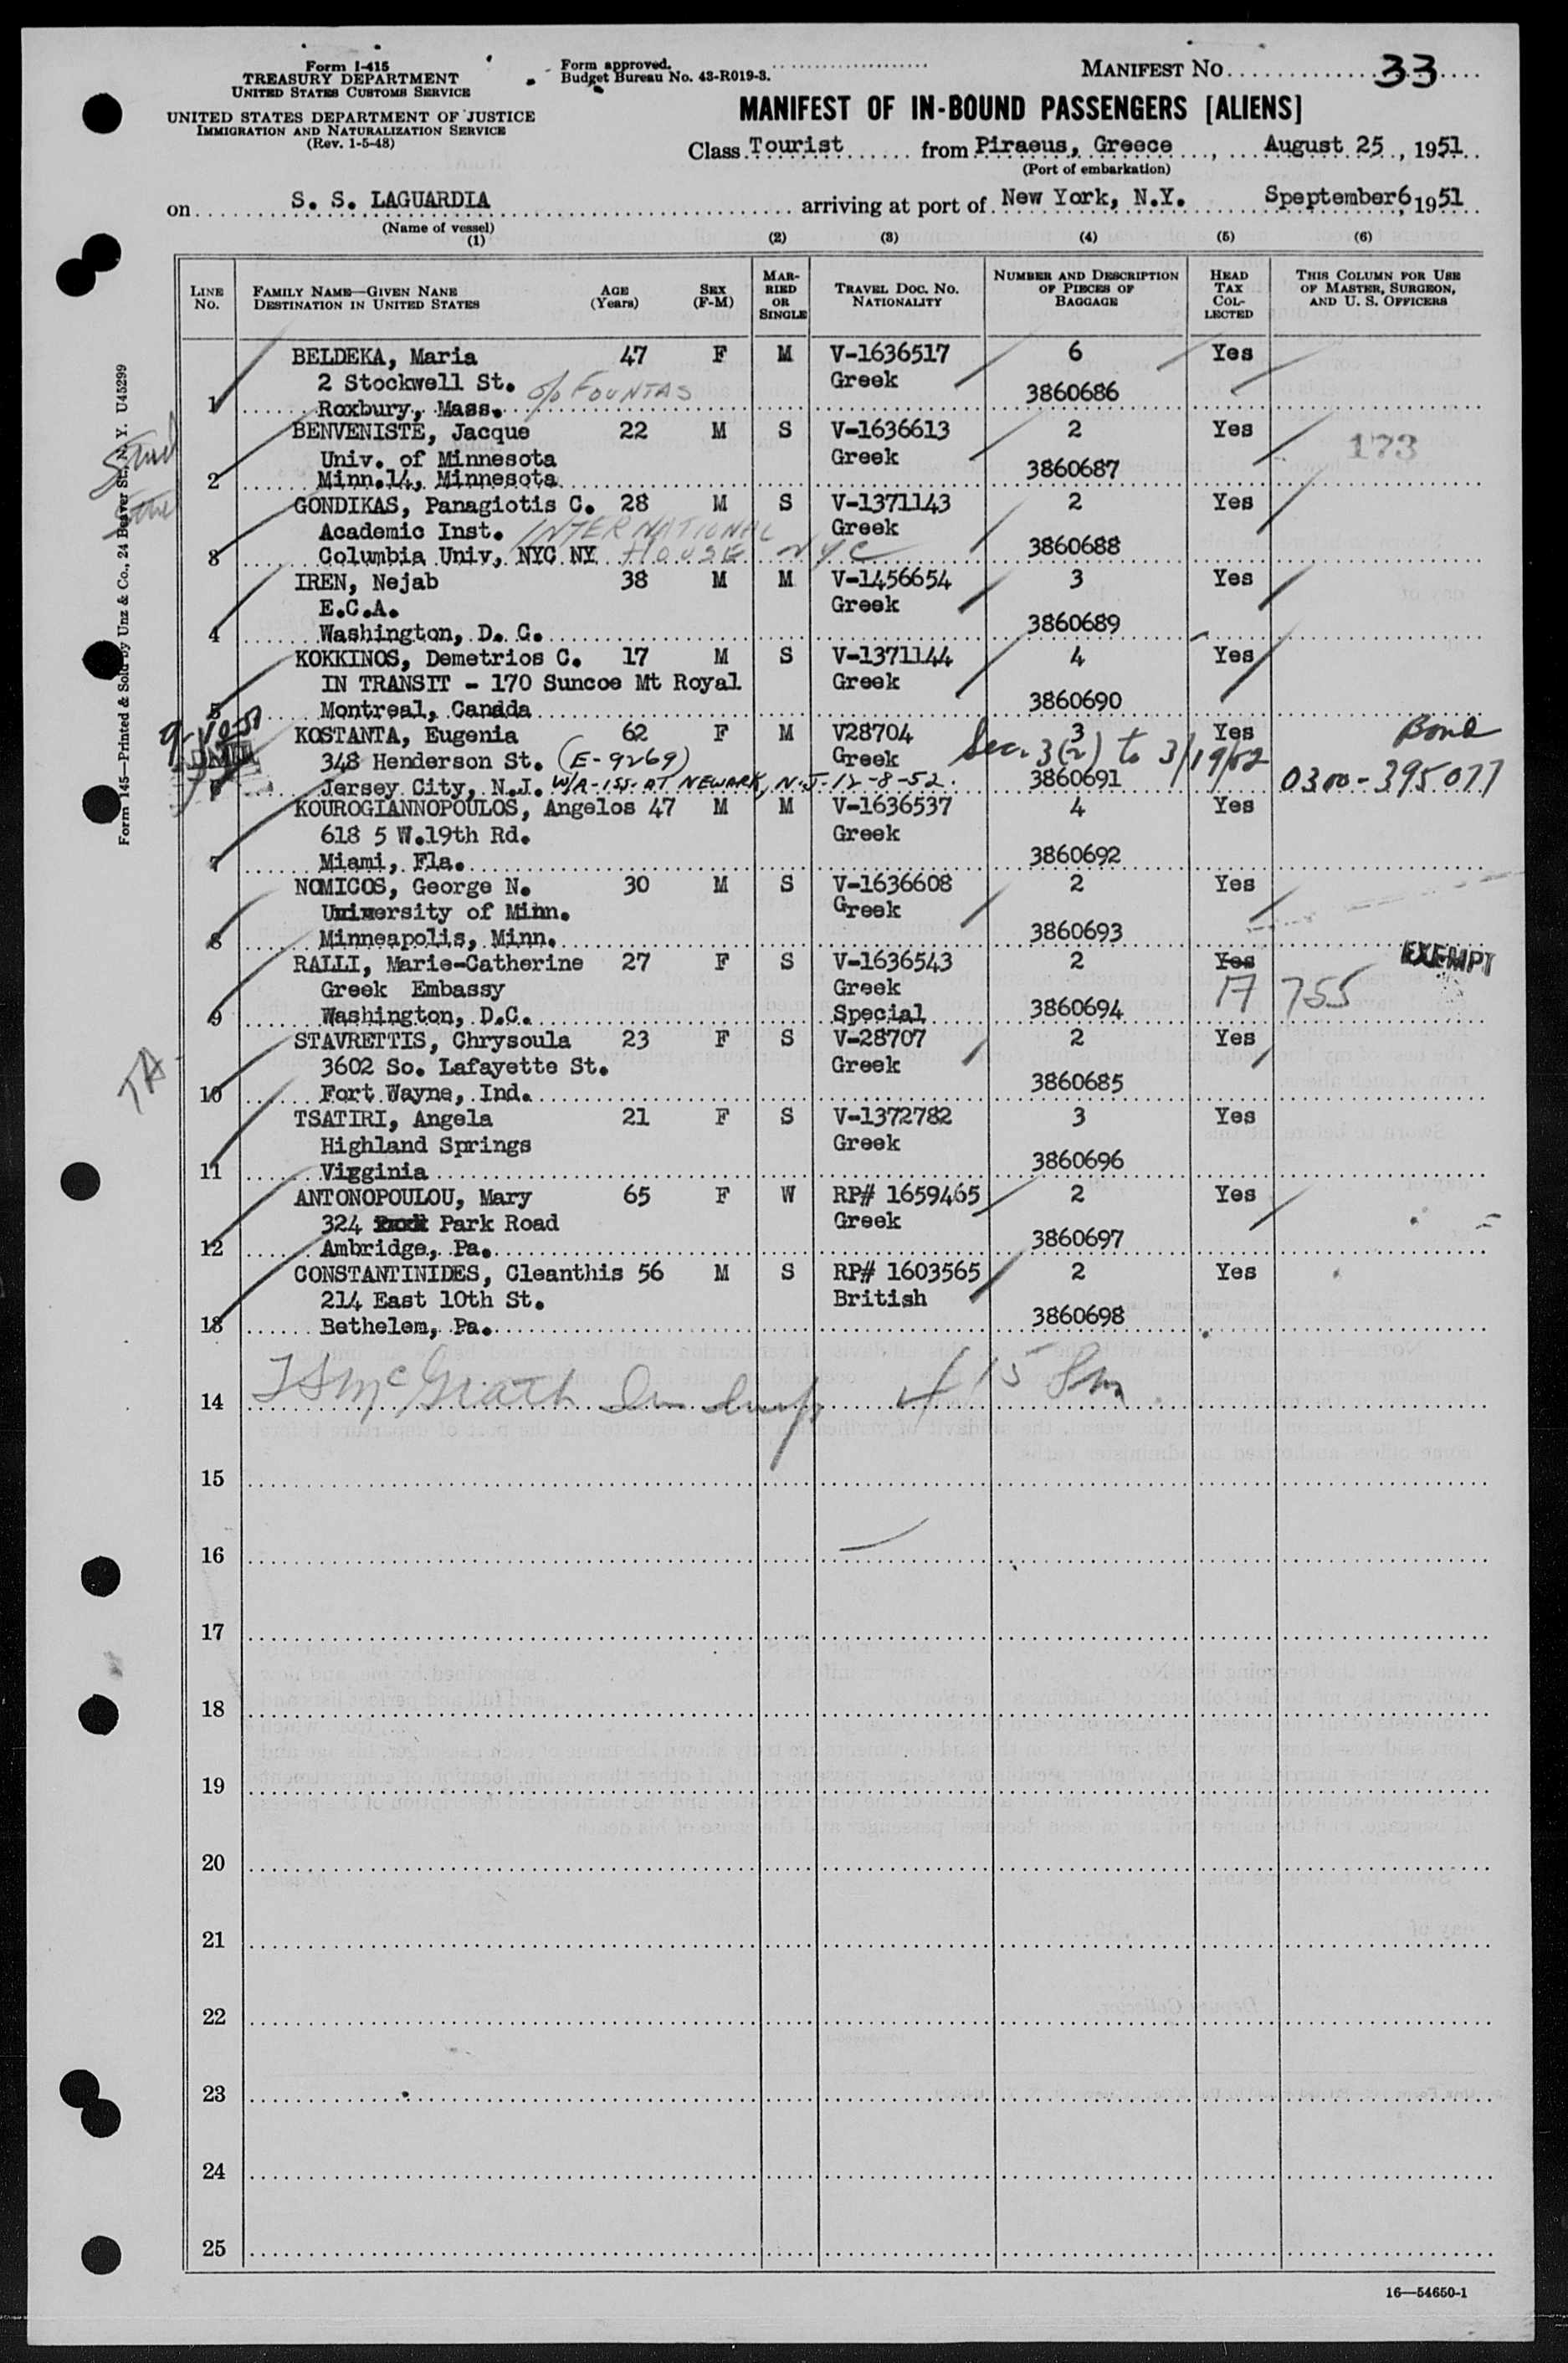 Form I-415
TREASURY DEPARTMENT
UNITED STATES CUSTOMS SERVICE
UNITED STATES DEPARTMENT OF JUSTICE
IMMIGRATION AND NATURALIZATION SERVICE
(Rev. 1-5-48)
Form approved.
Budget Bureau No. 43-R019-3.
MANIFEST NO. 33
MANIFEST OF IN-BOUND PASSENGERS [ALIENS]
Class Tourist from Piraeus, Greece, August 25, 1951
(Port of embarkation)
on S. S. LAGUARDIA arriving at port of New York, N.Y. Speptember6, 1951
(Name of vessel)
(1) (2) (3) (4) (5) (6)
LINE No.
FAMILY NAME—GIVEN NANE
DESTINATION IN UNITED STATES
AGE (Years)
SEX (F-M)
MARRIED OR SINGLE
TRAVEL DOC. NO.
NATIONALITY
NUMBER AND DESCRIPTION OF PIECES OF BAGGAGE
HEAD TAX COLLECTED
THIS COLUMN FOR USE OF MASTER, SURGEON, AND U. S. OFFICERS
BELDEKA, Maria 47 F M V-1636517 6 Yes
2 Stockwell St. c/o FOUNTAS Greek
1 Roxbury, Mass. 3860686
BENVENISTE, Jacque 22 M S V-1636613 2 Yes 173
Univ. of Minnesota Greek
2 Minn.14, Minnesota 3860687
GONDIKAS, Panagiotis C. 28 M S V-1371143 2 Yes
Academic Inst. INTERNATIONAL Greek
3 Columbia Univ, NYC NY HOUSE NYC 3860688
IREN, Nejab 38 M M V-1456654 3 Yes
E.C.A. Greek
4 Washington, D. C. 3860689
KOKKINOS, Demetrios C. 17 M S V-1371144 4 Yes
IN TRANSIT - 170 Suncoe Mt Royal Greek
5 Montreal, Candda 3860690
9-10-51
KOSTANTA, Eugenia 62 F M V28704 3 Yes Bond
348 Henderson St. (E-9269) Greek Sec. 3(2) to 3/19/52
6 Jersey City, N.J. W/A-ISS. AT NEWARK, N.J-12-8-52. 3860691 0300-395077
KOUROGIANNOPOULOS, Angelos 47 M M V-1636537 4 Yes
618 5 W.19th Rd. Greek
7 Miami, Fla. 3860692
NOMICOS, George N. 30 M S V-1636608 2 Yes
University of Minn. Greek
8 Minneapolis, Minn. 3860693
RALLI, Marie-Catherine 27 F S V-1636543 2 Yes EXEMPT
Greek Embassy Greek 17 755
9 Washington, D.C. Special 3860694
STAVRETTIS, Chrysoula 23 F S V-28707 2 Yes
3602 So. Lafayette St. Greek
10 Fort Wayne, Ind. 3860685
TA
TSATIRI, Angela 21 F S V-1372782 3 Yes
Highland Springs Greek
11 Vigginia 3860696
ANTONOPOULOU, Mary 65 F W RP# 1659465 2 Yes
324 Park Road Greek
12 Ambridge, Pa. 3860697
CONSTANTINIDES, Cleanthis 56 M S RP# 1603565 2 Yes
214 East 10th St. British
13 Bethelem, Pa. 3860698
14 McGrath 4 15 Pm
15
16
17
18
19
20
21
22
23
24
25
16—54650-1
Form 145—Printed & Sold by Unz & Co., 24 Beaver St., N. Y. U45299